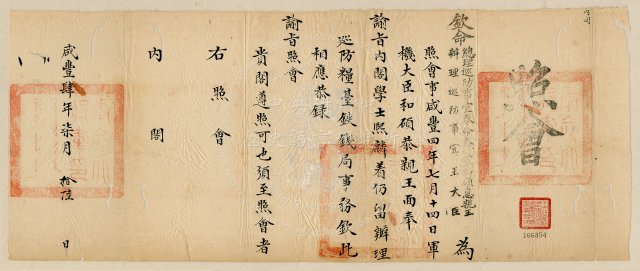 照會
欽命
辦理巡防事宜王大臣
為
照會事咸豐四年七月十四日軍
機大臣和碩恭親王面奉
諭旨內閣學士熙麟著仍留辦理
巡防糧臺鐵錢局事務欽此
相應恭錄
諭旨照會
貴閣遵照可也須至照會者
右照會
內閣
咸豐肆年柒月拾陸日
166354